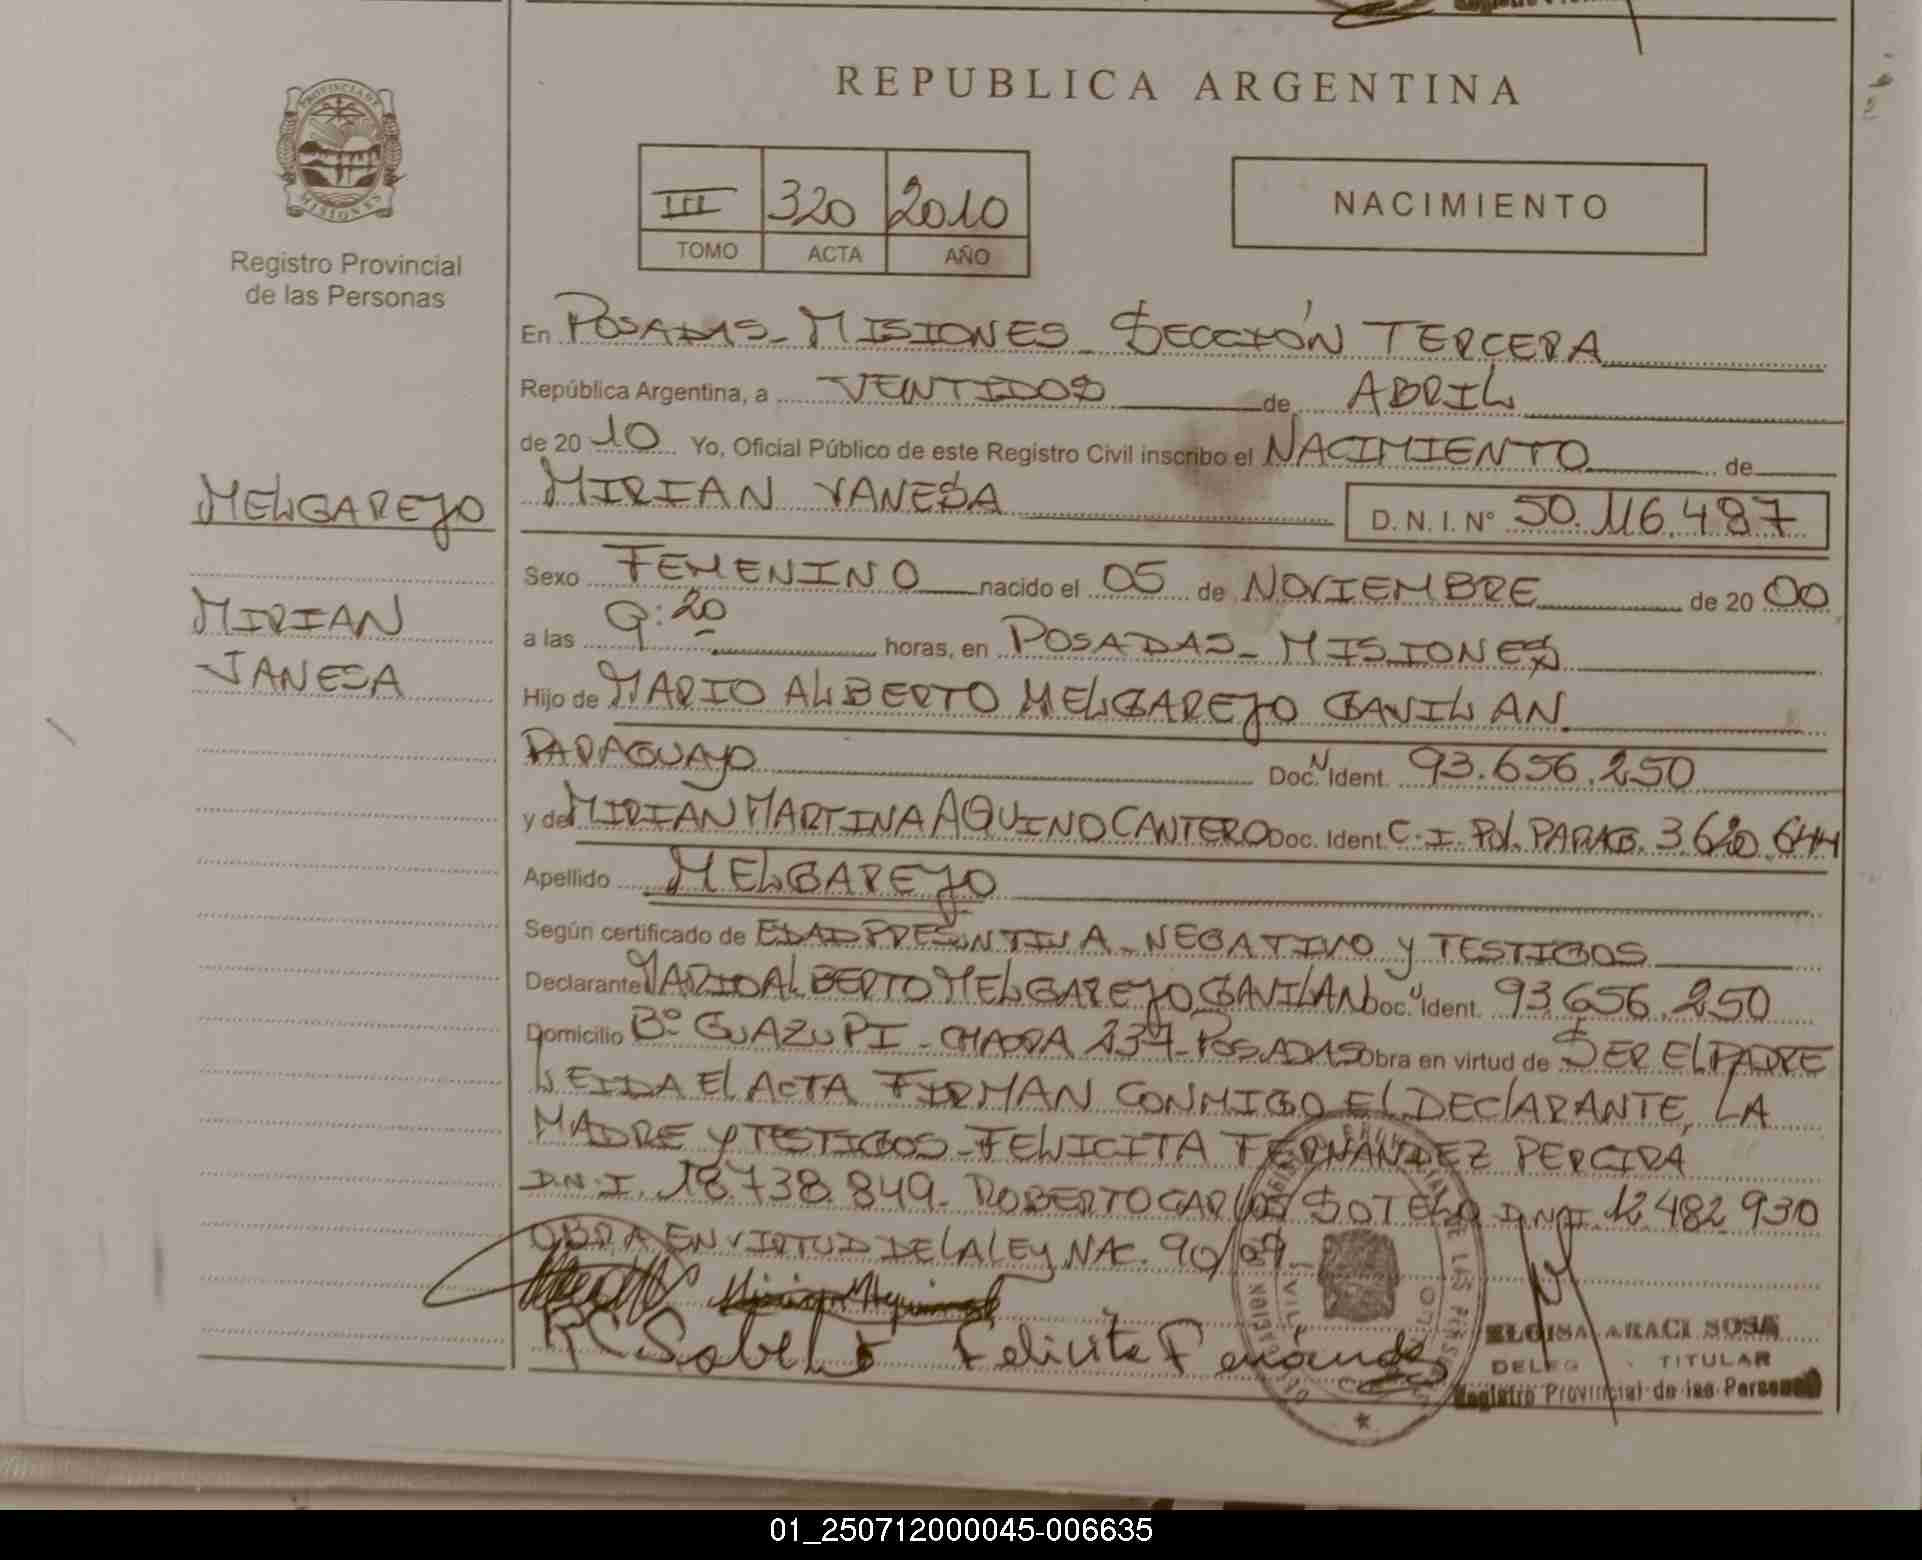 PROVINCIA DE
MISIONES
Registro Provincial
de las Personas
MELGAREJO
MIRIAN
VANESA
REPUBLICA ARGENTINA
III 320 2010
TOMO ACTA AÑO
NACIMIENTO
En POSADAS - MISIONES - SECCIÓN TERCERA
República Argentina, a VEINTIDOS de ABRIL
de 20 10 Yo, Oficial Público de este Registro Civil inscribo el NACIMIENTO de
MIRIAN VANESA D. N. I. N° 50.116.487
Sexo FEMENINO nacido el 05 de NOVIEMBRE de 20 00
a las 9:20 horas, en POSADAS - MISIONES
Hijo de MARIO ALBERTO MELGAREJO GAVILAN
PARAGUAYO Doc. Ident. 93.656.250
y de MIRIAN MARTINA AQUINO CANTERO Doc. Ident. C.I. Pol. PARAG. 3.620.644
Apellido MELGAREJO
Según certificado de EDAD PRESUNTIVA - NEGATIVO y TESTIGOS
Declarante MARIO ALBERTO MELGAREJO GAVILAN Doc. Ident. 93.656.250
Domicilio B° GUAZUPI - CHACRA 237 - POSADAS Obra en virtud de SER EL PADRE
LEIDA El ACTA FIRMAN CONMIGO El DEClARANTE, LA
MADRE y TESTIGOS - FELICITA FERNÁNDEZ PEREIRA
D.N.I. 18.738.849 - ROBERTO CARLOS SOTELO D.N.I. 12.482.930
OBRA EN VIRTUD DE LA LEY NAC. 90/09
Felicita Fernandez
ELOISA ARACI SOSA
TITULAR
Registro Provincial de las Personas
01_250712000045-006635